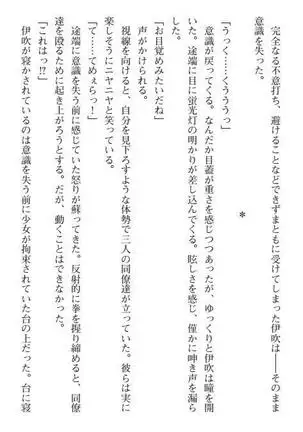 完全なる不意打ち、避けることなどできずまともに受けてしまった伊吹は――そのまま
意識を失った。
＊
「うっく……くうううっ」
意識が戻ってくる。なんだか目蓋が重さを感じつつあったが、ゆっくりと伊吹は瞳を開
いた。途端に目に蛍光灯の明かりが差し込んでくる。眩しさを感じ、僅かに呻き声を漏ら
した。
「お目覚めみたいだね」
声がかけられる。
視線を向けると、自分を見下ろすような体勢で三人の同僚達が立っていた。彼らは実に
楽しそうにニヤニヤと笑っている。
「て……てめぇらっ！」
途端に意識を失う前に感じていた怒りが蘇ってきた。反射的に拳を握り締めると、同僚
達を殴るために起き上がろうとする。だが、動くことはできなかった。
「これはっ!?」
伊吹が寝かされているのは意識を失う前に少女が拘束されていた台の上だった。台に寝